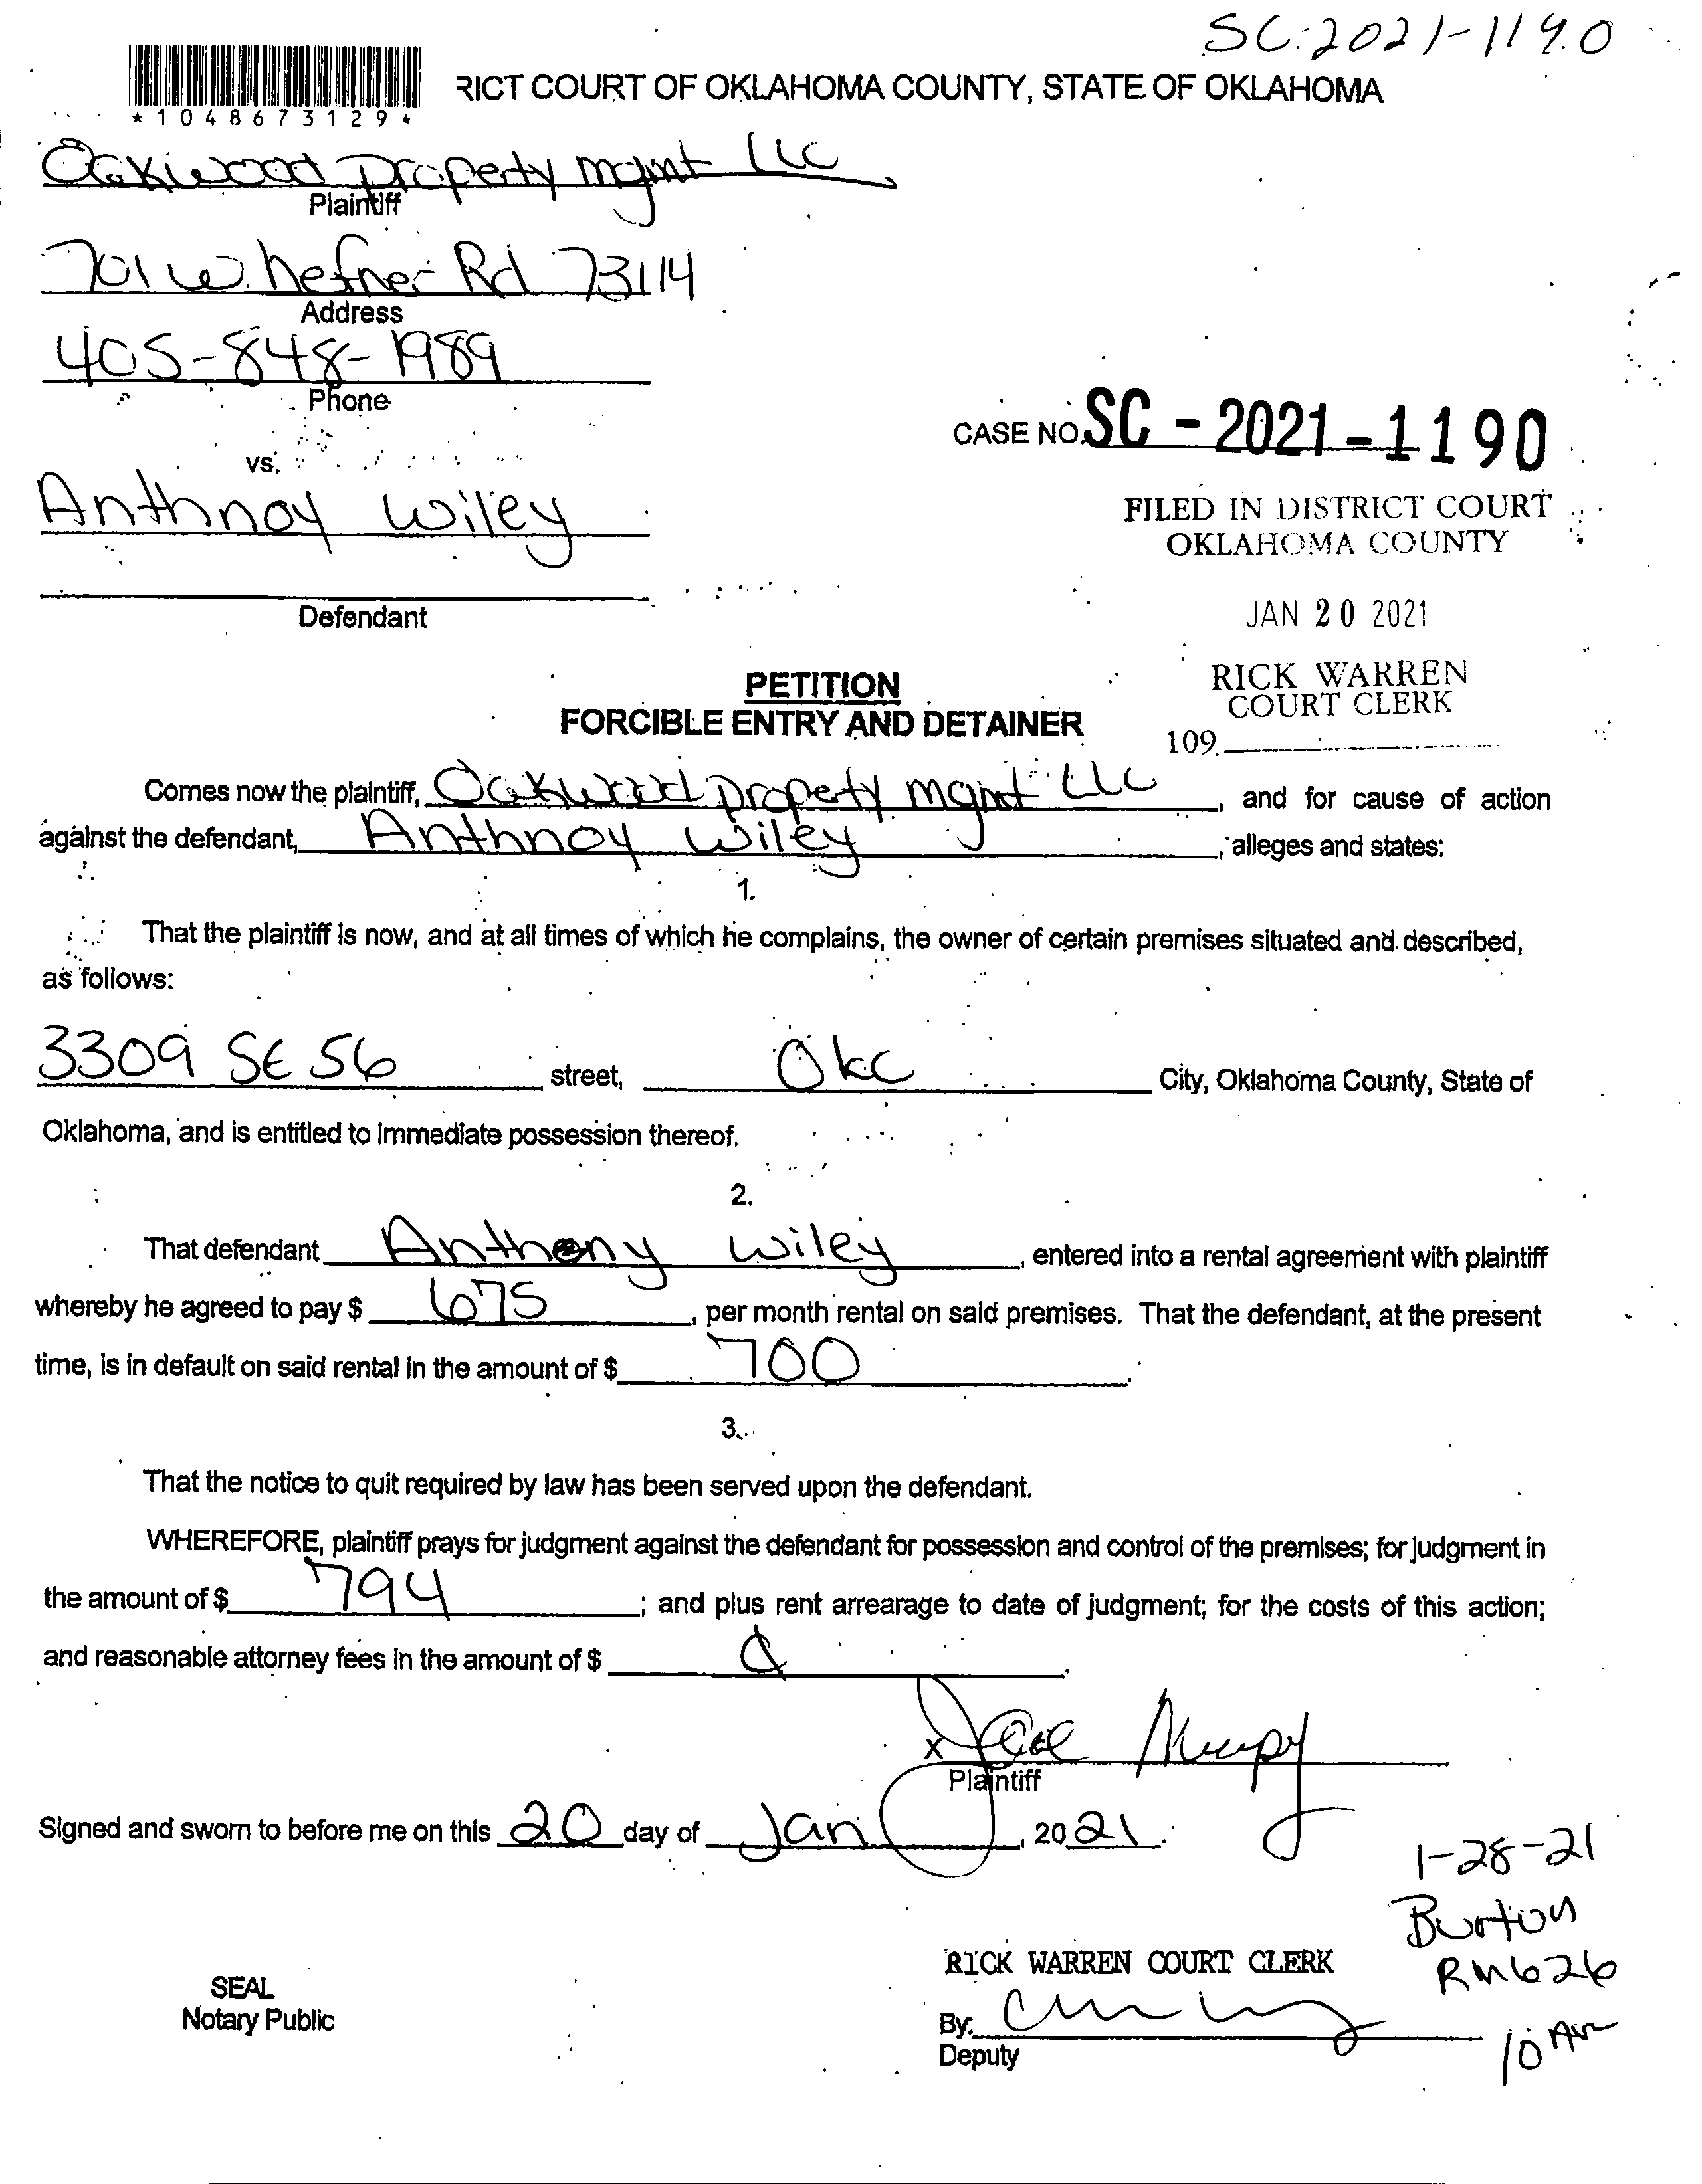 SC-2021-1190
*1048673129*
RICT COURT OF OKLAHOMA COUNTY, STATE OF OKLAHOMA
Oakwood property mgmt LLC
Plaintiff
701 W. hefner Rd 73114
Address
405-848-1989
Phone
CASE NO. SC - 2021 - 1190
vs.
Anthnoy Wiley
FILED IN DISTRICT COURT
OKLAHOMA COUNTY
Defendant
JAN 20 2021
PETITION
RICK WARREN
COURT CLERK
FORCIBLE ENTRY AND DETAINER
109.
Comes now the plaintiff, Oakwood property mgmt LLC, and for cause of action
against the defendant, Anthnoy Wiley, alleges and states:
1.
That the plaintiff is now, and at all times of which he complains, the owner of certain premises situated and described,
as follows:
3309 SE 56 street, Okc City, Oklahoma County, State of
Oklahoma, and is entitled to immediate possession thereof.
2.
That defendant Anthony Wiley, entered into a rental agreement with plaintiff
whereby he agreed to pay $ 675, per month rental on said premises. That the defendant, at the present
time, is in default on said rental in the amount of $ 700.
3.
That the notice to quit required by law has been served upon the defendant.
WHEREFORE, plaintiff prays for judgment against the defendant for possession and control of the premises; for judgment in
the amount of $ 794; and plus rent arrearage to date of judgment; for the costs of this action;
and reasonable attorney fees in the amount of $
X
Plaintiff
Signed and sworn to before me on this 20 day of Jan, 2021.
1-28-21
Burton
RM626
10 AM
RICK WARREN COURT CLERK
SEAL
Notary Public
By:
Deputy